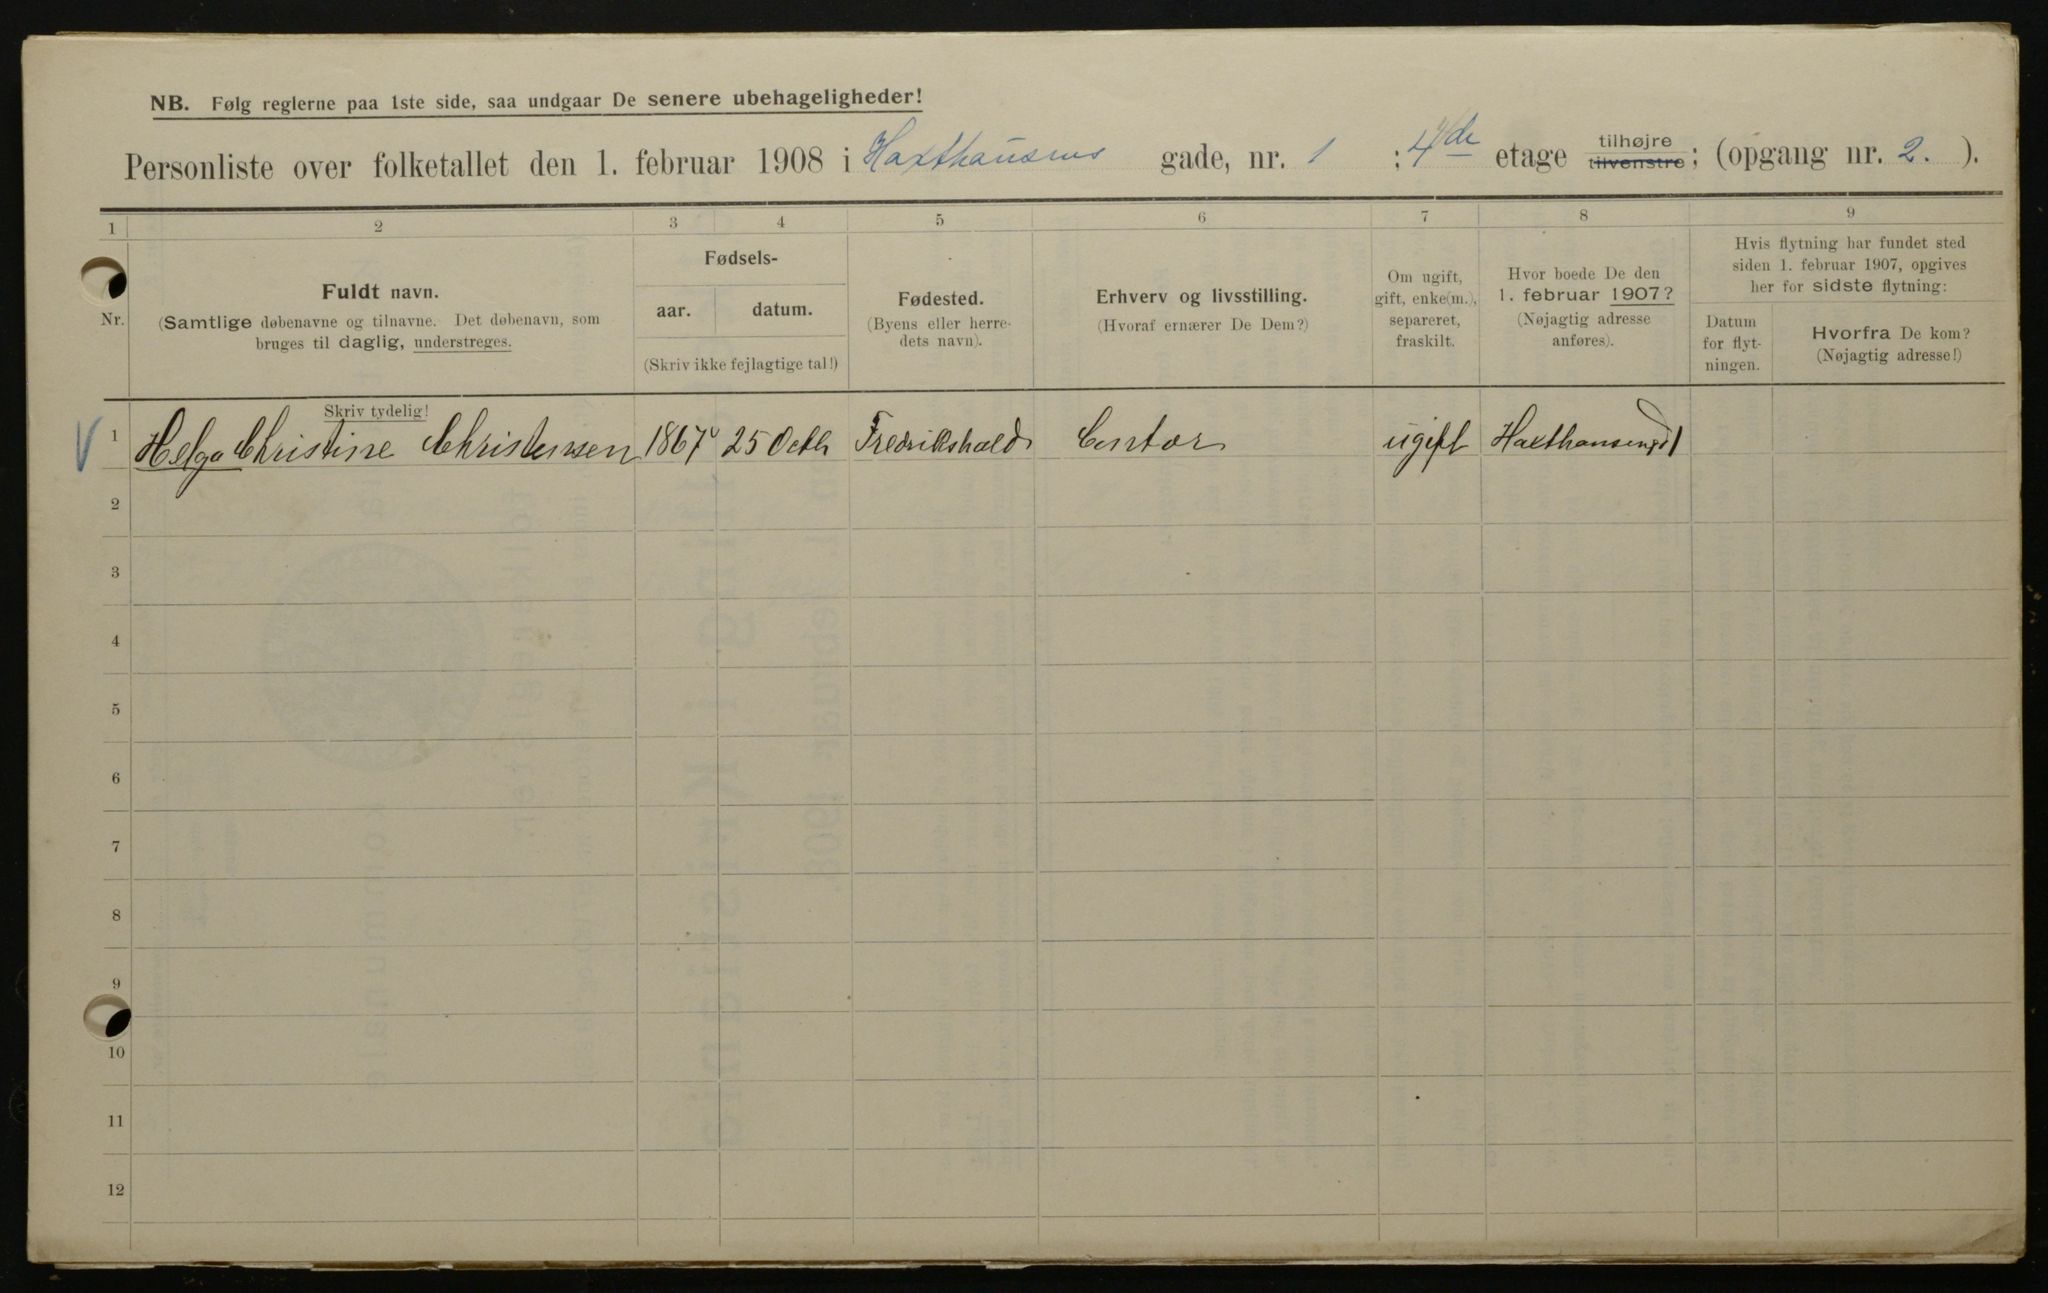 NB. Følg reglerne paa 1ste side, saa undgaar De senere ubehageligheder!
Personliste over folketallet den 1. februar 1908 i Haxthausens gade, nr. 1 ; 4de etage tilhøjre tilvenstre; (opgang nr. 2. ).
1 2 3 4 5 6 7 8 9
Nr.
Fuldt navn.
(Samtlige døbenavne og tilnavne. Det døbenavn, som
bruges til daglig, understreges.
Fødsels-
aar. datum.
(Skriv ikke fejlagtige tal!)
Fødested.
(Byens eller herre-
dets navn).
Erhverv og livsstilling.
(Hvoraf ernærer De Dem?)
Om ugift,
gift, enke(m.),
separeret,
fraskilt.
Hvor boede De den
1. februar 1907?
(Nøjagtig adresse
anføres).
Hvis flytning har fundet sted
siden 1. februar 1907, opgives
her for sidste flytning:
Datum
for flyt-
ningen.
Hvorfra De kom?
(Nøjagtig adresse!)
Skriv tydelig!
1 Helga Christine Christensen 1867 25 Octb Fredrikshald Contor ugift Haxthausengd 1
2
3
4
5
6
7
8
9
10
11
12